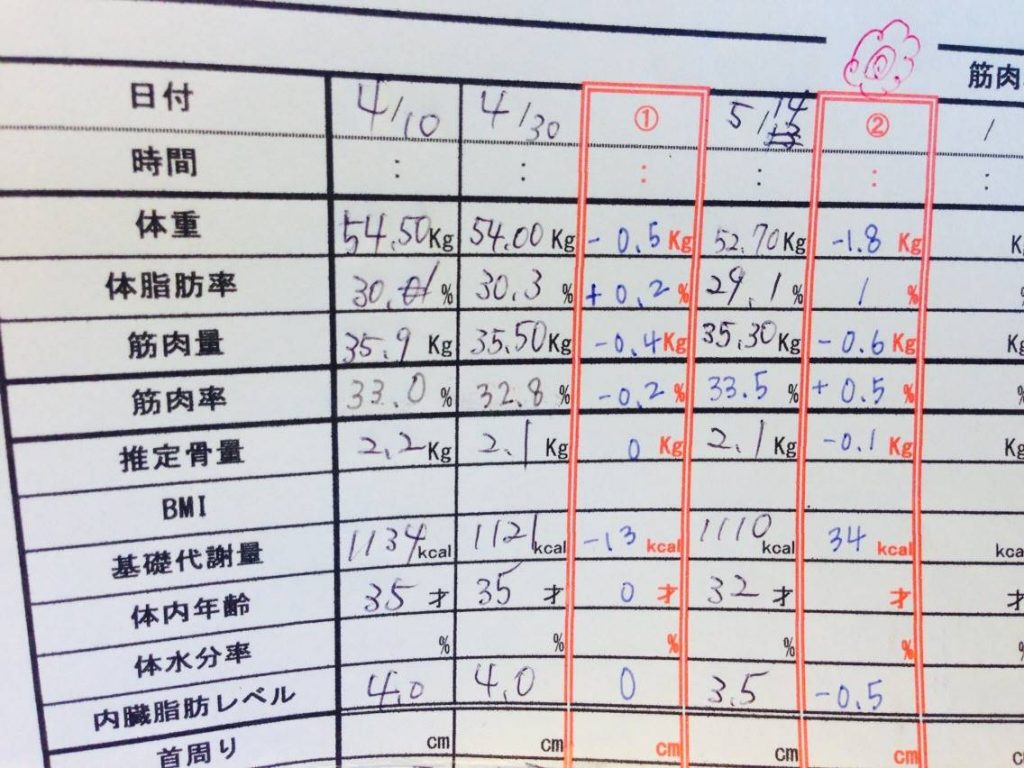 筋肉
日付 4/10 4/30 ① 5/14 ② /
時間 : : : : : :
体重 54.50Kg 54.00Kg -0.5Kg 52.70Kg -1.8Kg K
体脂肪率 30.1% 30.3% +0.2% 29.1% 1% %
筋肉量 35.9Kg 35.50Kg -0.4Kg 35.30Kg -0.6Kg Kg
筋肉率 33.0% 32.8% -0.2% 33.5% +0.5% %
推定骨量 2.2Kg 2.1Kg 0Kg 2.1Kg -0.1Kg Kg
BMI
基礎代謝量 1134kcal 1121kcal -13kcal 1110kcal 34kcal kca
体内年齢 35才 35才 0才 32才 才 才
体水分率 % % % % % %
内臓脂肪レベル 4.0 4.0 0 3.5 -0.5
首周り cm cm cm cm cm c